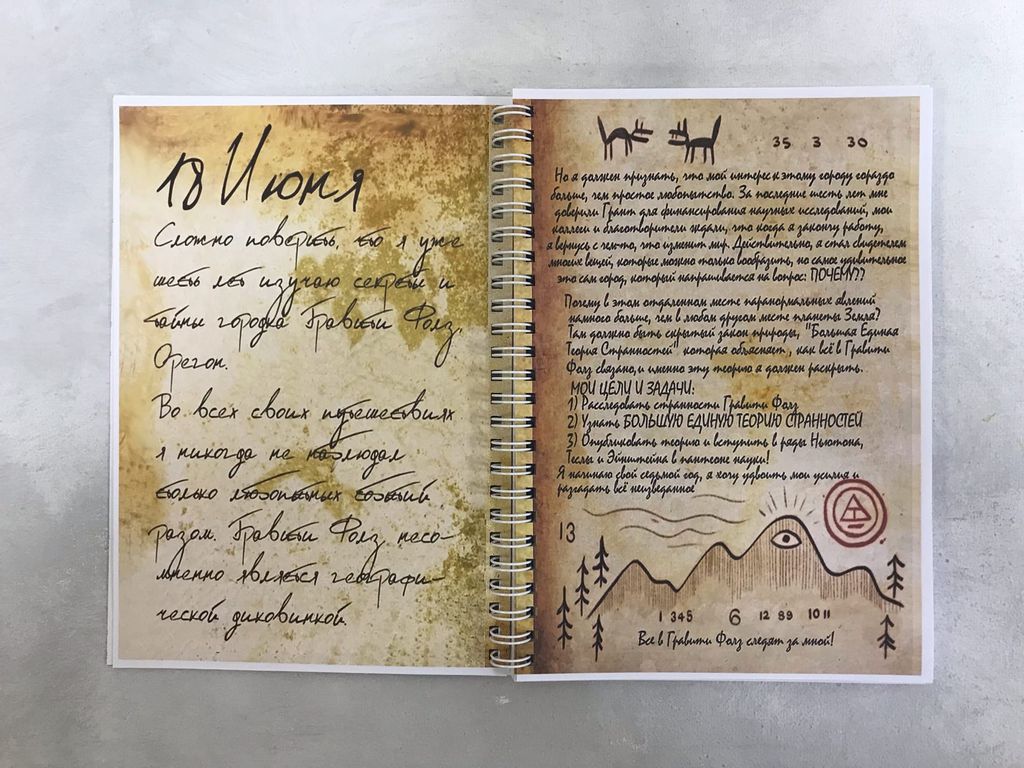 18 Июня
Сложно поверить, что я уже
шесть лет изучаю секреты и
тайны городка Гравити Фолз,
Орегон.
Во всех своих путешествиях
я никогда не наблюдал
столько любопытных событий
разом. Гравити Фолз несо-
мненно является географи-
ческой диковинкой.
35 3 30
Но я должен признать, что мой интерес к этому городу гораздо
больше, чем простое любопытство. За последние шесть лет мне
доверили Грант для финансирования научных исследований, мои
коллеги и благотворители ждали, что когда я закончу работу,
я вернусь с чем-то, что изменит мир. Действительно, я стал свидетелем
многих вещей, которые можно только вообразить, но самое удивительное
это сам город, который напрашивается на вопрос: ПОЧЕМУ??
Почему в этом отдаленном месте паранормальных явлений
намного больше, чем в любом другом месте планеты Земля?
Там должно быть скрытый закон природы, "Большая Единая
Теория Странностей" которая объясняет, как всё в Гравити
Фолз связано,и именно эту теорию я должен раскрыть.
МОИ ЦЕЛИ И ЗАДАЧИ:
1) Расследовать странности Гравити Фолз
2) Узнать БОЛЬШУЮ ЕДИНУЮ ТЕОРИЮ СТРАННОСТЕЙ
3) Опубликовать теорию и вступить в ряды Ньютона,
Теслы и Эйнштейна в пантеоне науки!
Я начинаю свой седьмой год, я хочу удвоить мои усилия и
разгадать всё неизведанное
13
1 345 6 12 89 10 11
Все в Гравити Фолз следят за мной!